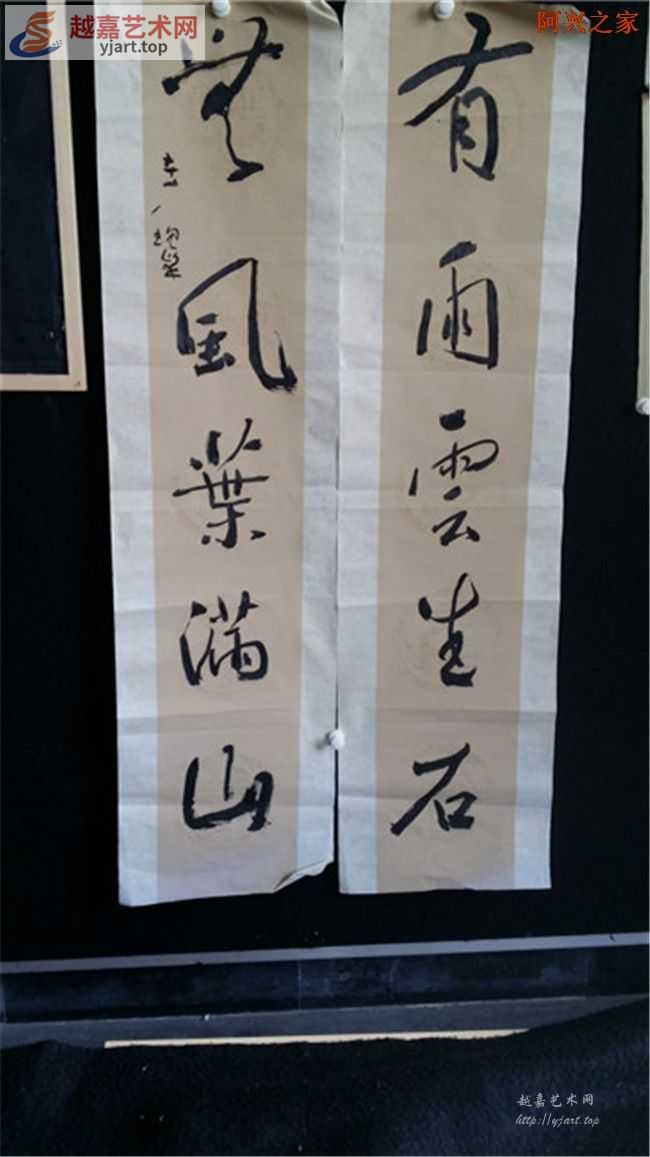 越嘉艺术网
yjart.top
阿兴之家
有雨雲生石
無風葉满山
越嘉艺术网
http://yjart.top